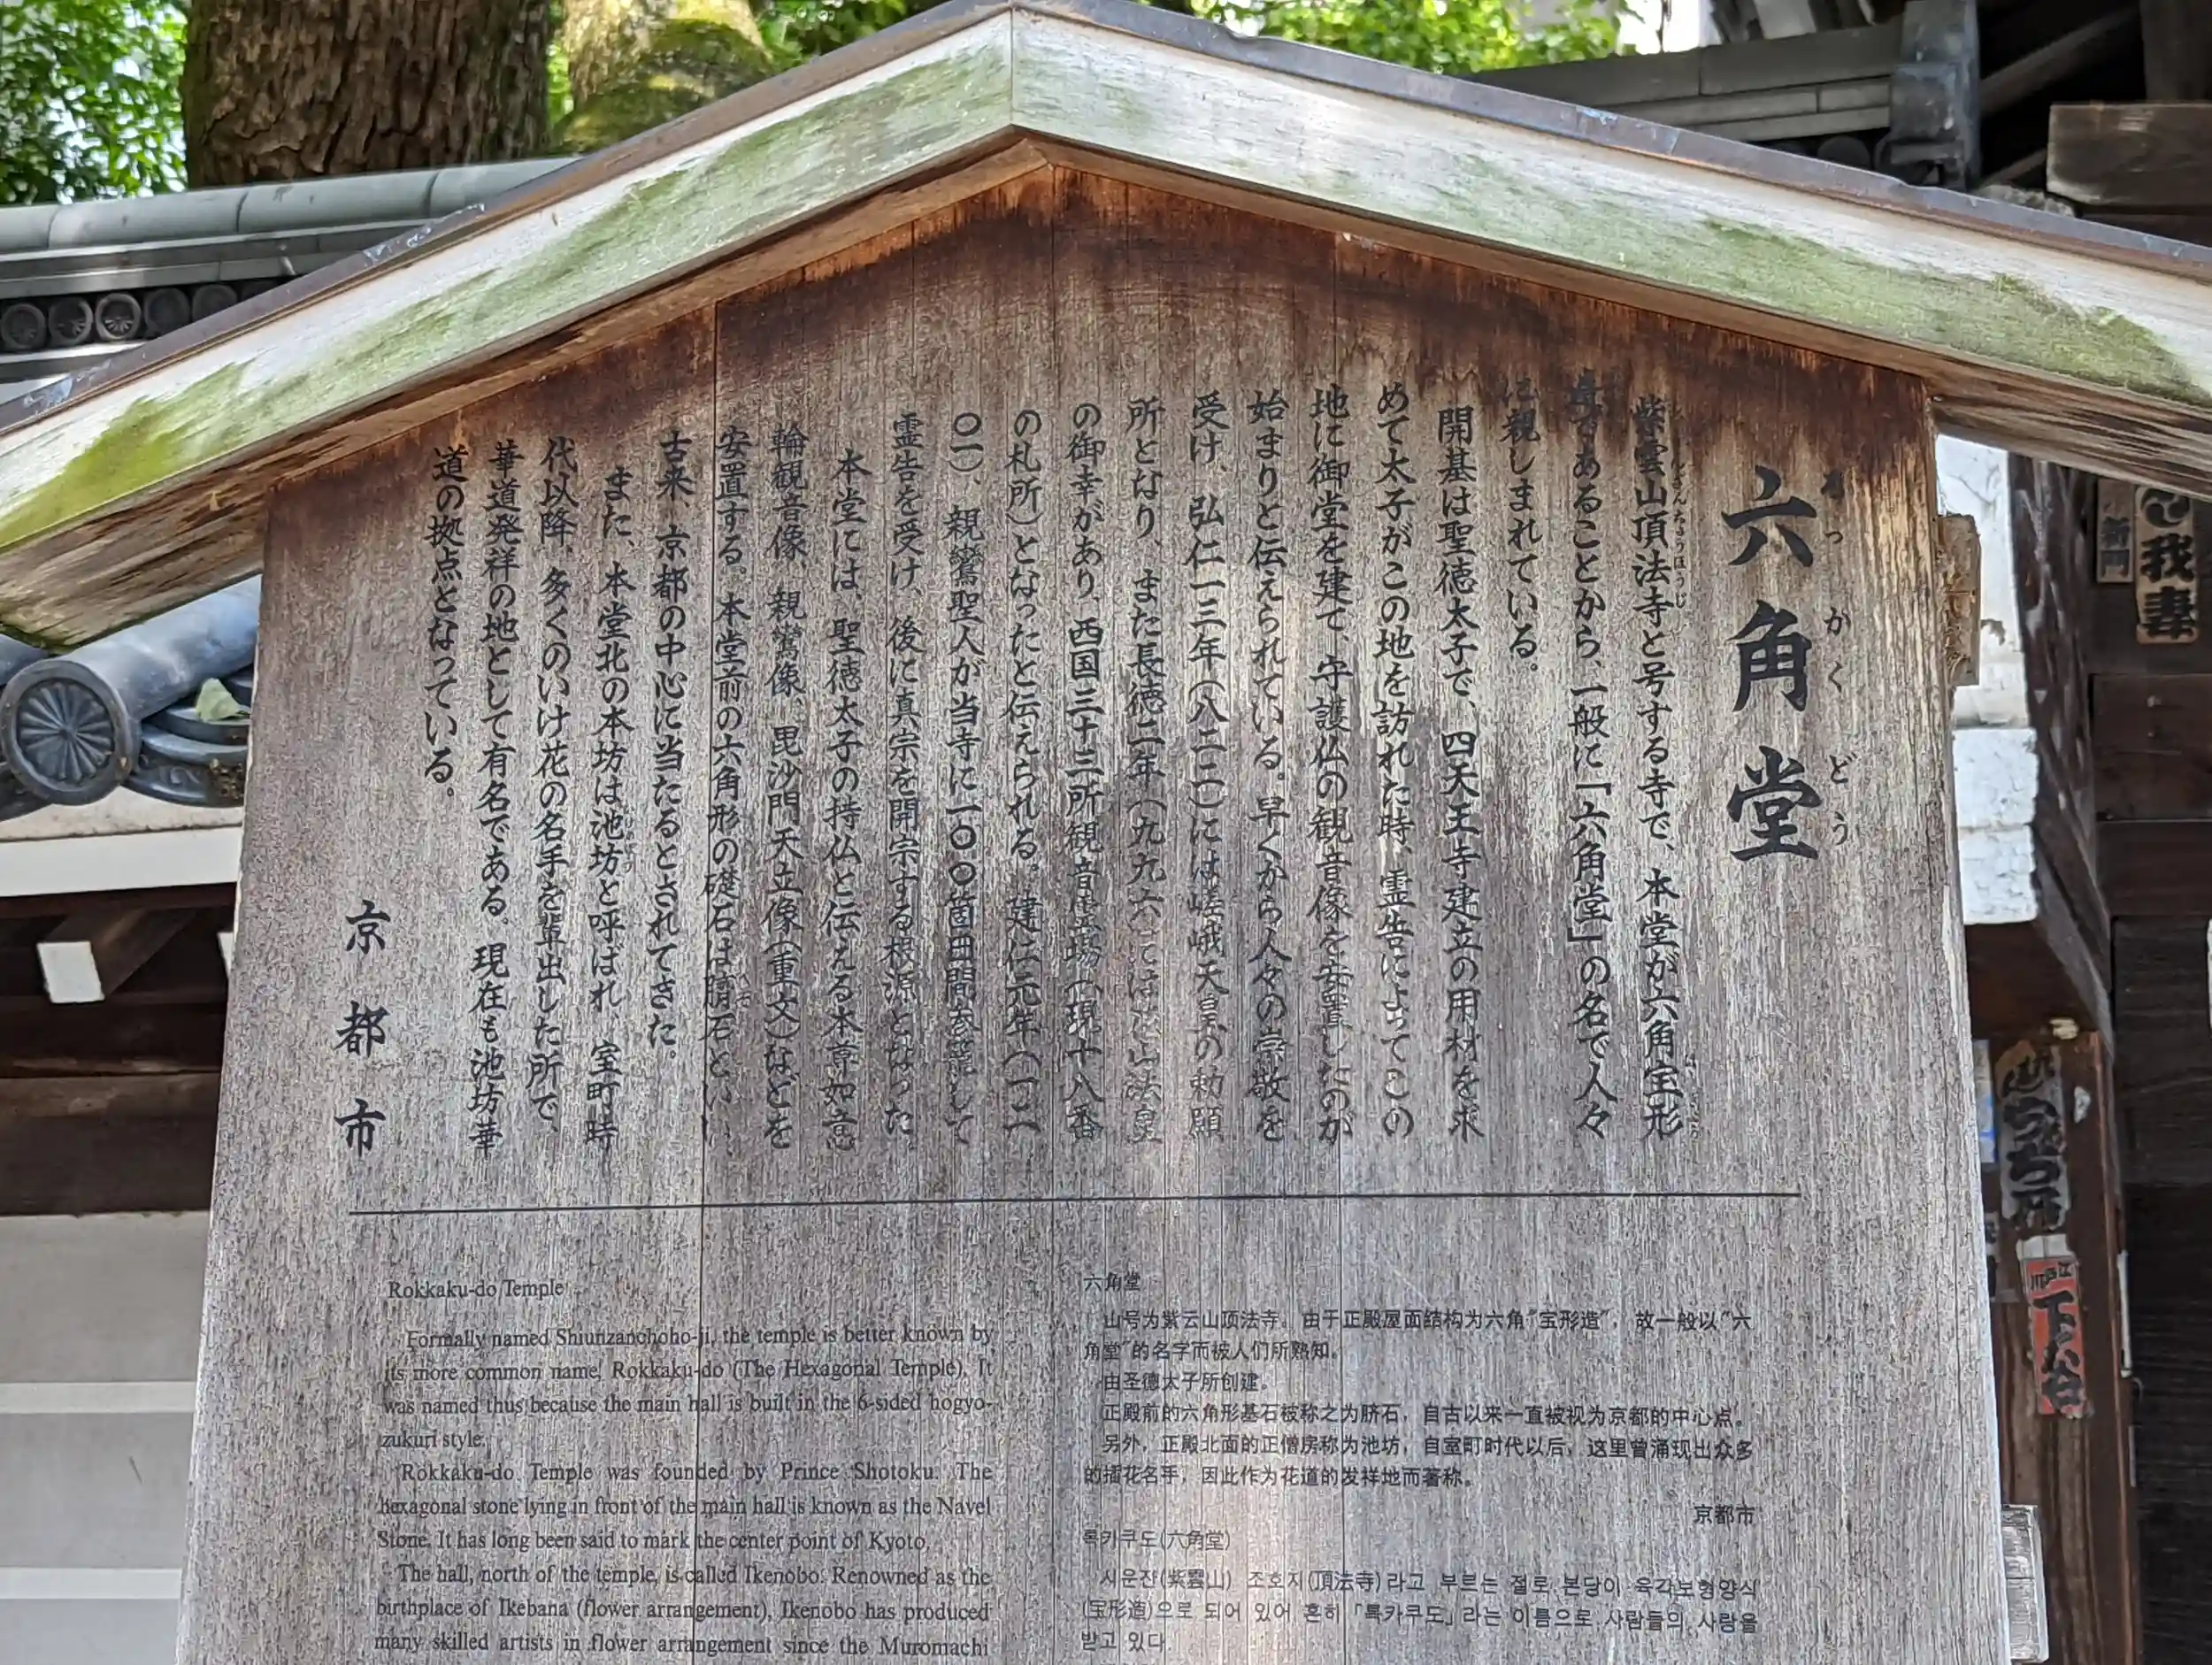 六角堂
ろっかくどう
紫雲山頂法寺と号する寺で、本堂が六角宝形
造であることから、一般に「六角堂」の名で人々
に親しまれている。
開基は聖徳太子で、四天王寺建立の用材を求
めて太子がこの地を訪れた時、霊告によってこの
地に御堂を建て、守護仏の観音像を安置したのが
始まりと伝えられている。早くから人々の崇敬を
受け、弘仁一三年(八二二)には嵯峨天皇の勅願
所となり、また長徳二年(九九六)には花山法皇
の御幸があり、西国三十三所観音霊場(現十八番
の札所)となったと伝えられる。建仁元年(一二
〇一)、親鸞聖人が当寺に一〇〇箇日間参籠して
霊告を受け、後に真宗を開宗する根源となった
本堂には、聖徳太子の持仏と伝える本尊如意
輪観音像、親鸞像、毘沙門天立像(重文)などを
安置する。本堂前の六角形の礎石は臍石といい、
古来、京都の中心に当たるとされてきた。
また、本堂北の本坊は池坊と呼ばれ、室町時
代以降、多くのいけ花の名手を輩出した所で、
華道発祥の地として有名である。現在も池坊華
道の拠点となっている。
京都市
Rokkaku-do Temple
Formally named Shiunzanchoho-ji, the temple is better known by
its more common name, Rokkaku-do (The Hexagonal Temple). It
was named thus because the main hall is built in the 6-sided hogyo-
zukuri style.
Rokkaku-do Temple was founded by Prince Shotoku. The
hexagonal stone lying in front of the main hall is known as the Navel
Stone. It has long been said to mark the center point of Kyoto.
The hall, north of the temple, is called Ikenobo. Renowned as the
birthplace of Ikebana (flower arrangement), Ikenobo has produced
many skilled artists in flower arrangement since the Muromachi
六角堂
山号为紫云山顶法寺。由于正殿屋面结构为六角“宝形造”,故一般以“六
角堂”的名字而被人们所熟知。
由圣德太子所创建。
正殿前的六角形基石被称之为脐石,自古以来一直被视为京都的中心点。
另外,正殿北面的正僧房称为池坊,自室町时代以后,这里曾涌现出众多
的插花名手,因此作为花道的发祥地而著称。
京都市
록카쿠도(六角堂)
시운잔(紫雲山) 조호지(頂法寺)라고 부르는 절로 본당이 육각보형양식
(宝形造)으로 되어 있어 흔히 「록카쿠도」라는 이름으로 사람들의 사랑을
받고 있다.
新門
我妻